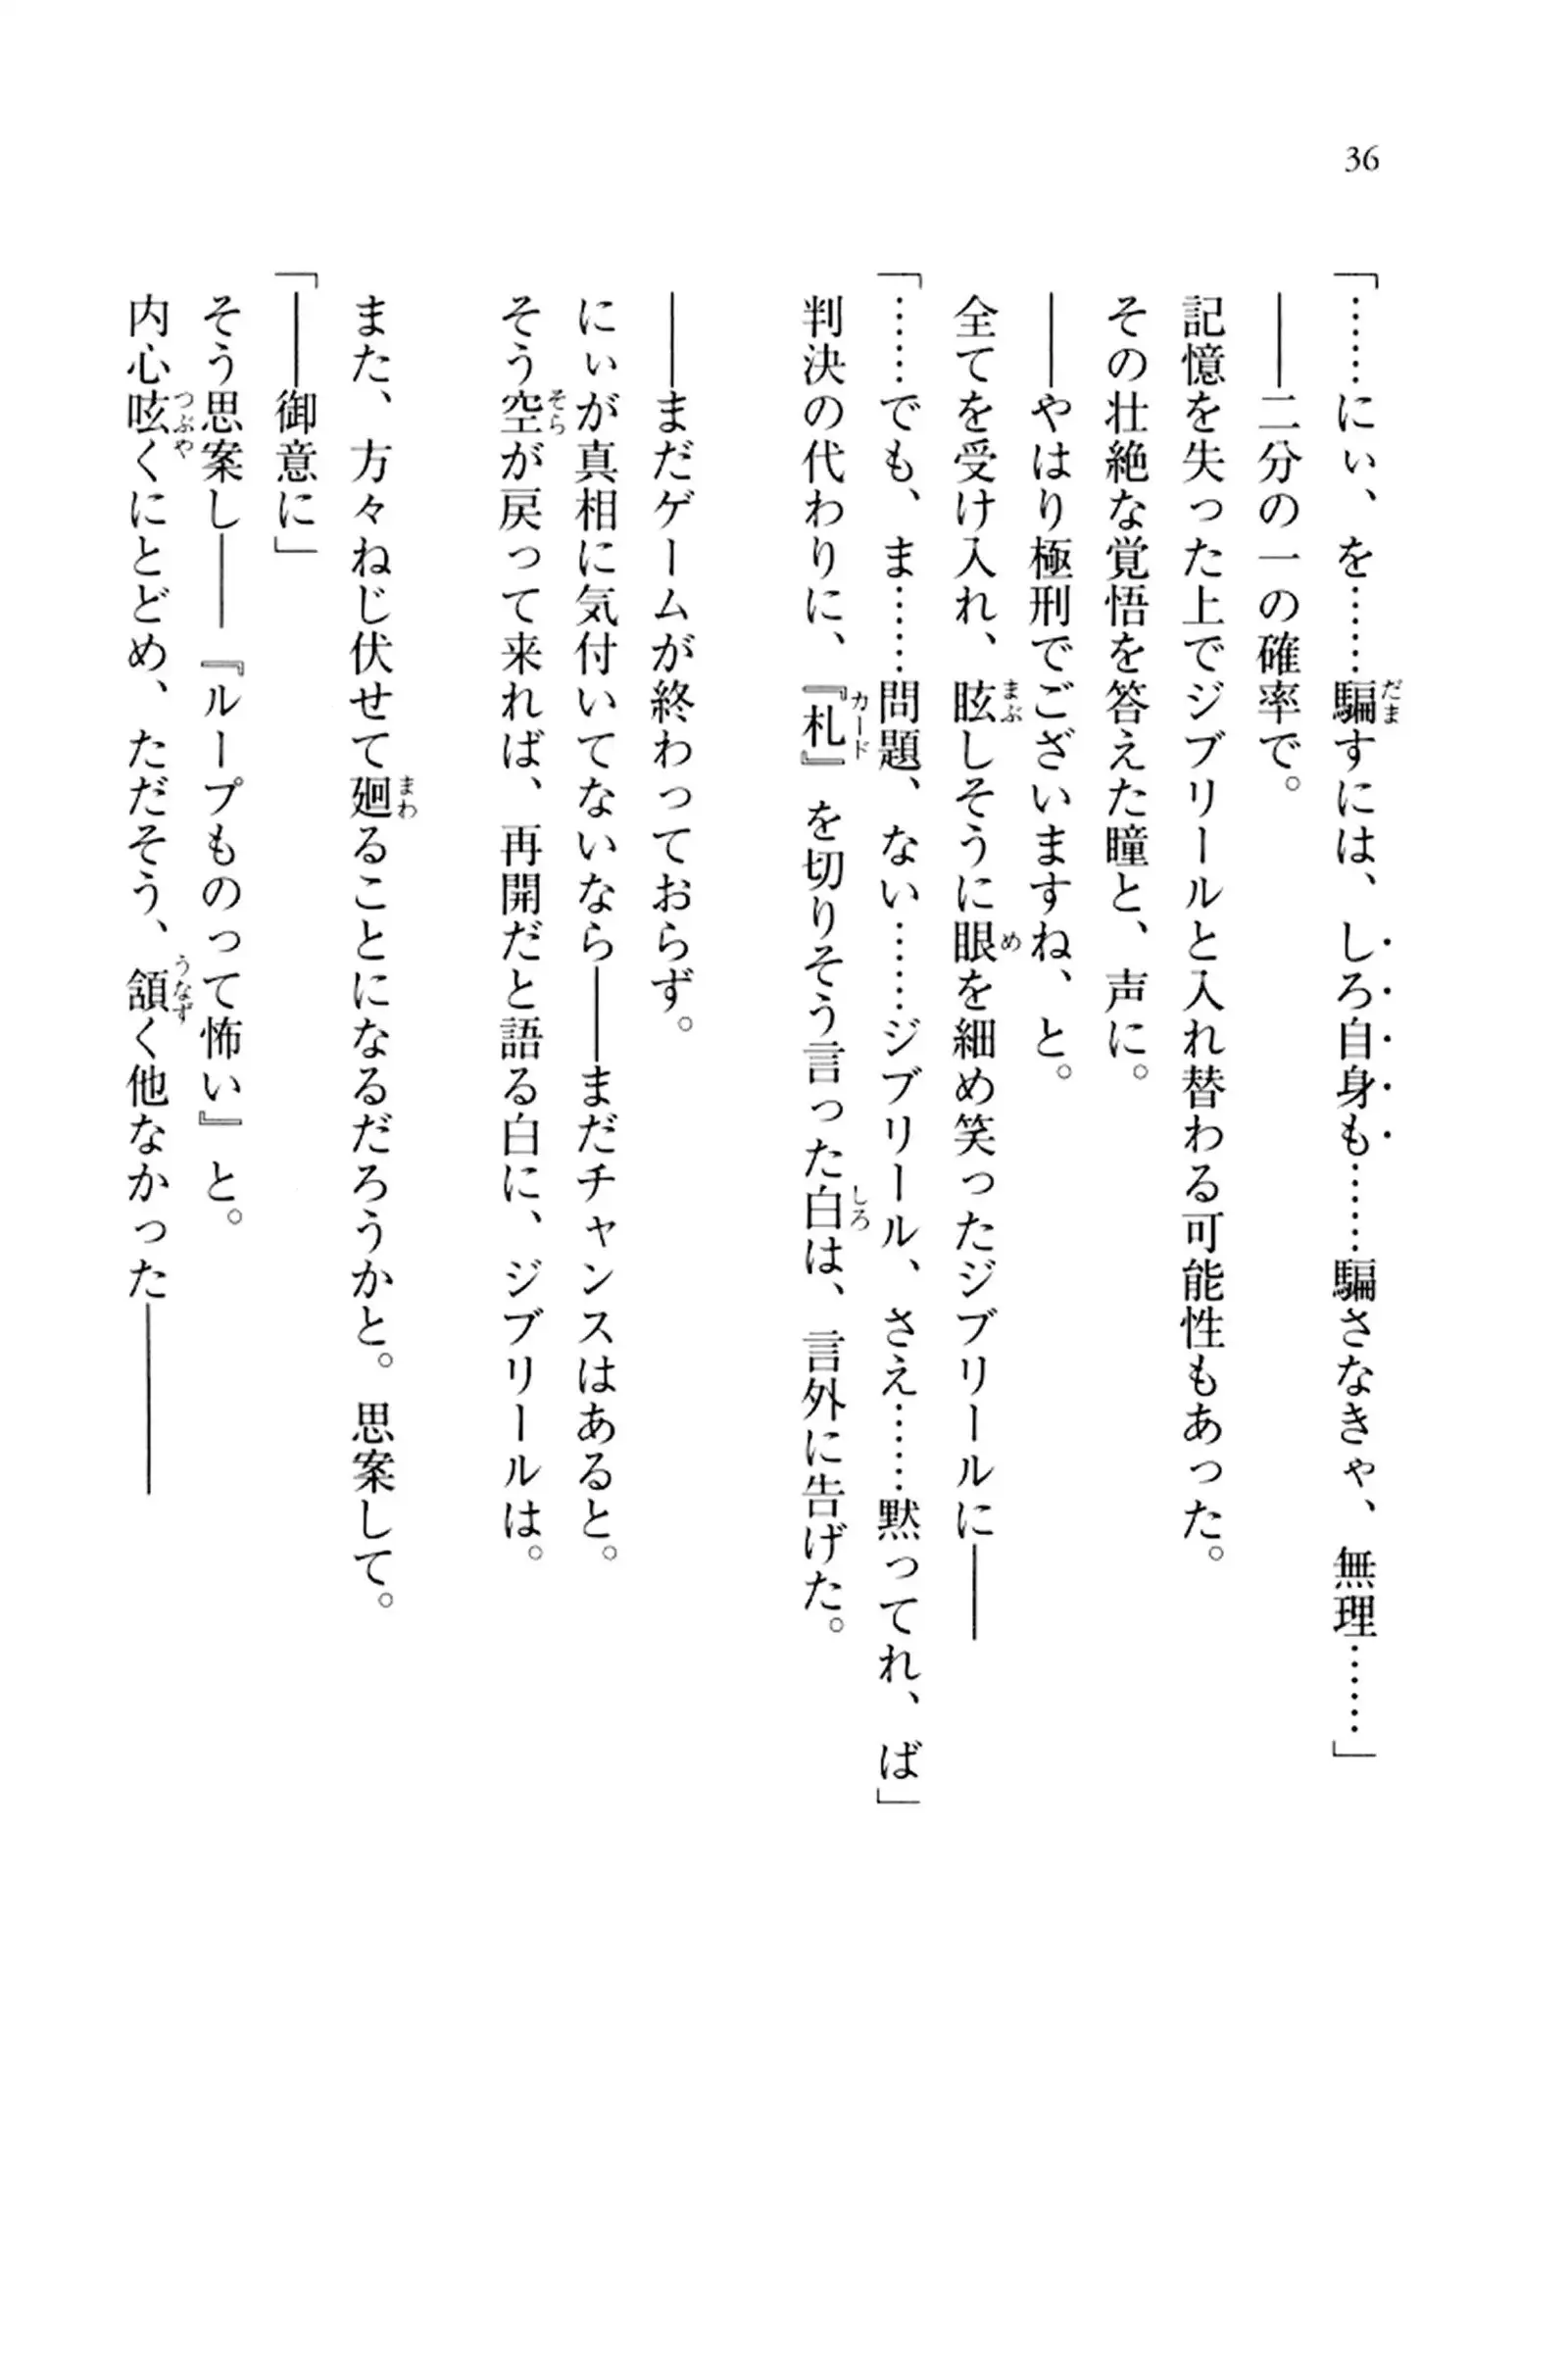 36
「……にぃ、を……騙すには、しろ自身も……騙さなきゃ、無理……」
――二分の一の確率で。
記憶を失った上でジブリールと入れ替わる可能性もあった。
その壮絶な覚悟を答えた瞳と、声に。
――やはり極刑でございますね、と。
全てを受け入れ、眩しそうに眼を細め笑ったジブリールに――
「……でも、ま……問題、ない……ジブリール、さえ……黙ってれ、ば」
判決の代わりに、『札』を切りそう言った白は、言外に告げた。
――まだゲームが終わっておらず。
にぃが真相に気付いてないなら――まだチャンスはあると。
そう空が戻って来れば、再開だと語る白に、ジブリールは。
また、方々ねじ伏せて廻ることになるだろうかと。思案して。
「――御意に」
そう思案し――『ループものって怖い』と。
内心呟くにとどめ、ただそう、頷く他なかった――――